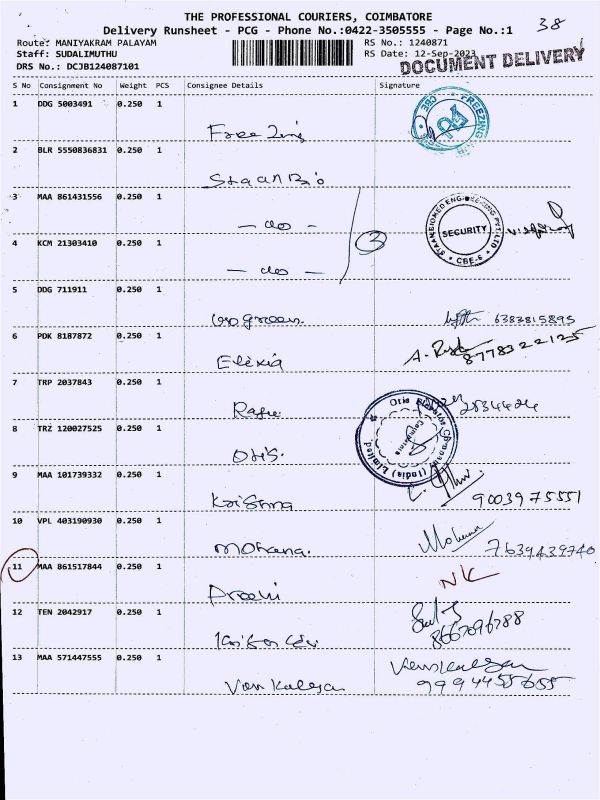 THE PROFESSIONAL COURIERS, COIMBATORE
38
Delivery Runsheet - PCG - Phone No.:0422-3505555 - Page No.:1
Route: MANIYAKRAM PALAYAM
RS No.: 1240871
Staff: SUDALIMUTHU
RS Date: 12-Sep-2023
DRS No.: DCJB124087101
DOCUMENT DELIVERY
S No Consignment No Weight PCS Consignee Details Signature
1 DDG 5003491 0.250 1
FREEZING
2 BLR 5550836831 0.250 1
3 MAA 861431556 0.250 1
— do —
SECURITY
CBE-6
3
4 KCM 21303410 0.250 1
— do —
5 DDG 711911 0.250 1
6383815895
6 PDK 8187872 0.250 1
Elexia
8778322125
7 TRP 2037843 0.250 1
8 TRZ 120027525 0.250 1
Otis (India) Limited
Otis.
9 MAA 101739332 0.250 1
Krishna
9003975551
10 VPL 403190930 0.250 1
Mohana.
7639439740
11 MAA 861517844 0.250 1
NK
12 TEN 2042917 0.250 1
8667096788
13 MAA 571447555 0.250 1
Venkalesan
9994455655